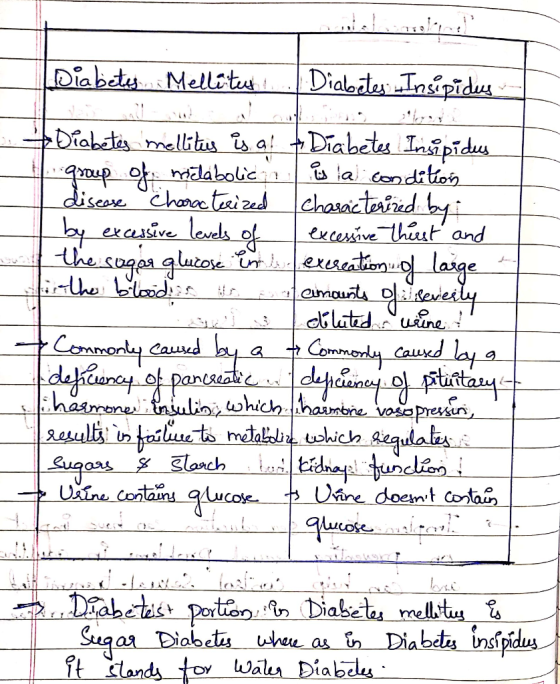 Diabetes Mellitus
→ Diabetes mellitus is a
group of metabolic
disease characterized
by excessive levels of
the sugar glucose in
the blood.
→ Commonly caused by a
deficiency of pancreatic
harmone insulin, which
results in failure to metaboliz
sugars & starch
→ Urine contains glucose
Diabetes Insipidus
→ Diabetes Insipidus
is a condition
characterized by
excessive thirst and
excreation of large
amounts of severly
diluted urine
→ Commonly caused by a
deficiency of pituitary
harmone vasopressin,
which regulates
kidnay function
→ Urine doesn't contain
glucose
→ Diabetes portion in Diabetes mellitus is
Sugar Diabetes where as in Diabetes insipidus
it stands for Water Diabetes.